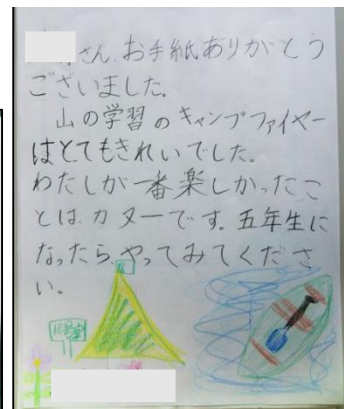 さん、お手紙ありがとう
ございました。
山の学習のキャンプファイヤー
はとてもきれいでした。
わたしが一番楽しかったこ
とは、カヌーです。五年生に
なったら、やってみてくださ
い。